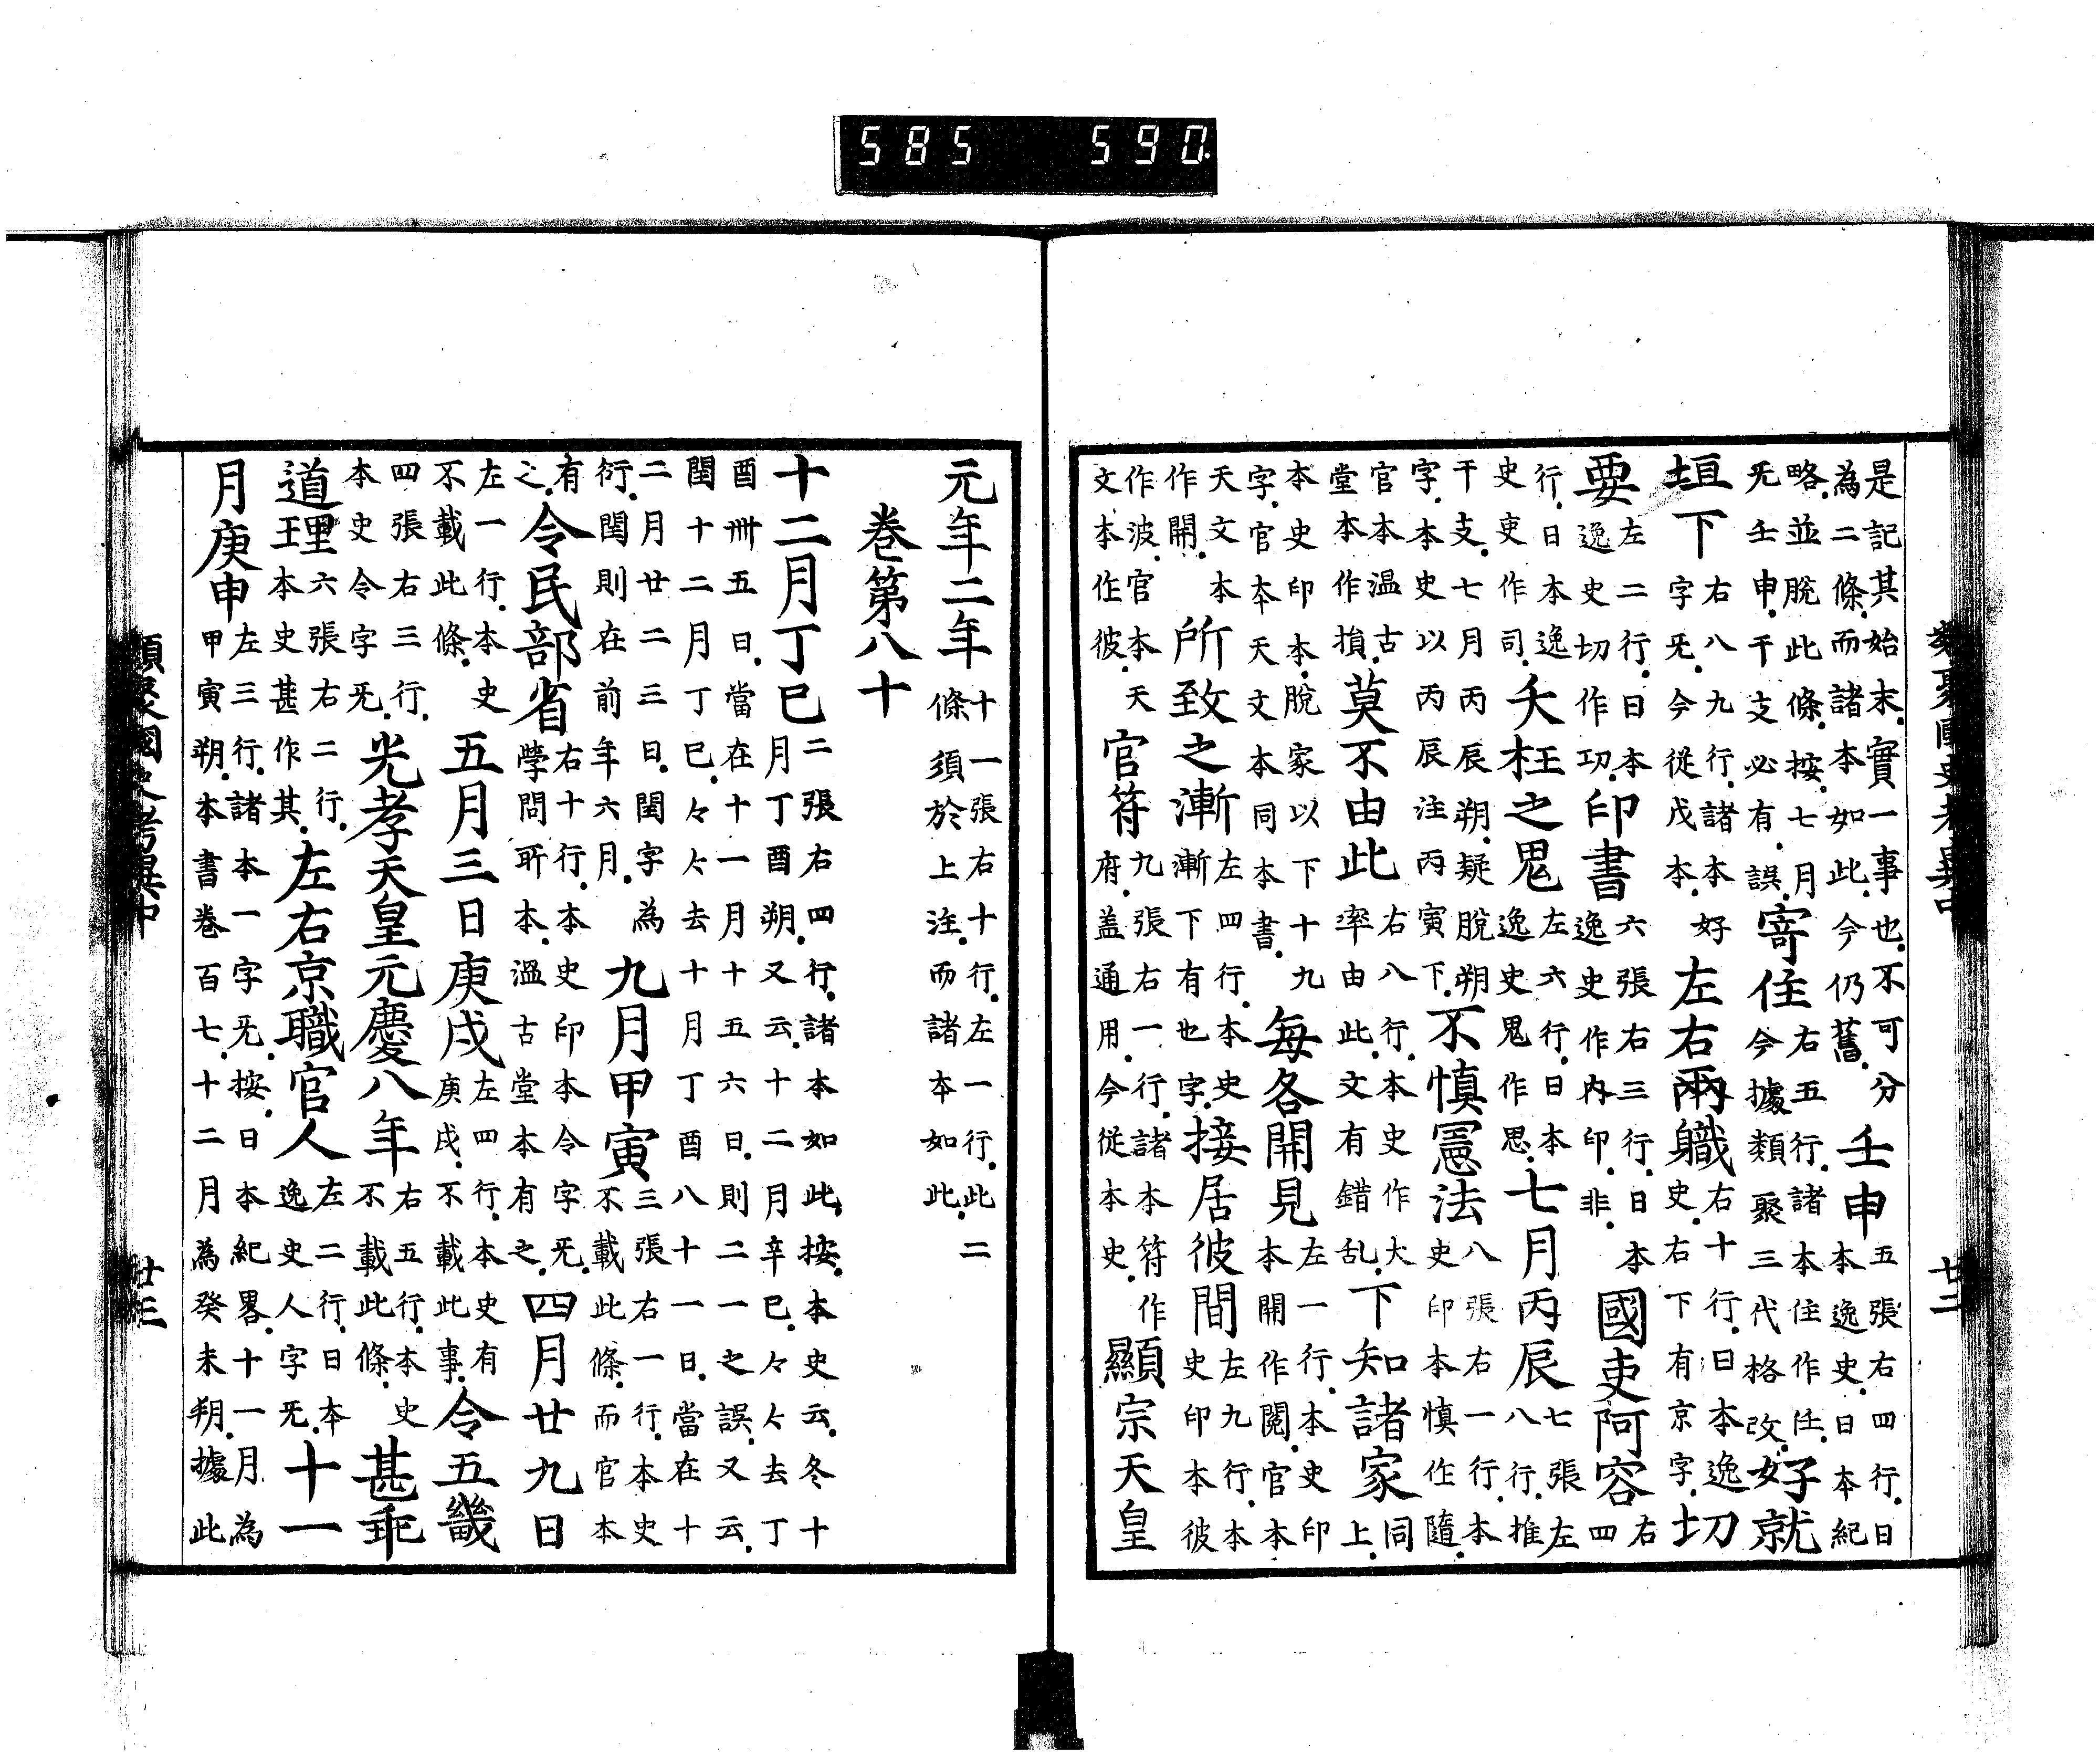 類聚國史考異中 廿二
是記其始末實一事也不可分
為二條而諸本如此今仍舊
壬申
五張右四行日
本逸史日本紀
略並脫此條按七月
旡壬申干支必有誤
寄住
右五行諸本住作住
今據類聚三代格改
好就
垣下
右八九行諸本好
字旡今從戊本
左右兩職
右十行日本逸
史右下有京字
切
要
左二行日本
逸史切作功
印書
六張右三行日本
逸史作內印非
國吏阿容
右
四
行日本逸
史吏作司
夭枉之鬼
左六行日本
逸史鬼作思
七月丙辰
七張左
八行推
干支七月丙辰朔疑脫朔
字本史以丙辰注丙寅下
不慎憲法
八張右一行本
史印本慎作隨
官本温古
堂本作損
莫不由此
右八行本史作大
率由此文有錯乱
下知諸家
同
上
本史印本脫家以下十九
字官本天文本同本書
每各開見
左一行本史印
本開作閱官本
天文本
作開
所致之漸
左四行本史
漸下有也字
接居彼間
左九行本
史印本彼
作波官本天
文本作彼
官符
九張右一行諸本符作
府盖通用今從本史
顯宗天皇
元年二年
十一張右十行左一行此二
條須於上注而諸本如此
卷第八十
十二月丁巳
二張右四行諸本如此按本史云冬十
月丁酉朔又云十二月辛巳々々亽去丁
酉卅五日當在十一月十五六日則二一之誤又云
閏十二月丁巳々々亽去十月丁酉八十一日當在十
二月廿二三日閏字為
衍閏則在前年六月
九月甲寅
三張右一行本史
不載此條而官本
有
之
令民部省
右十行本史印本令字旡
學問所本温古堂本有之
四月廿九日
左一行本史
不載此條
五月三日庚戌
左四行本史有
庚戌不載此事
令五畿
四張右三行
本史令字旡
光孝天皇元慶八年
右五行本史
不載此條
甚乖
道理
六張右二行
本史甚作其
左右京職官人
左二行日本
逸史人字旡
十一
月庚申
左三行諸本一字旡按日本紀畧十一月為
甲寅朔本書卷百七十二月為癸未朔據此
類聚國史考異中 廿三
585 590